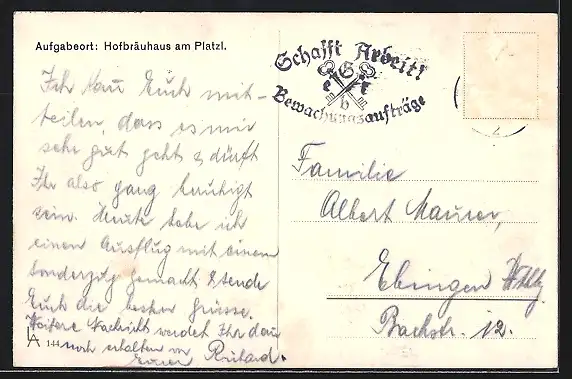 Aufgabeort: Hofbräuhaus am Platzl.
Schafft Arbeit!
Bewachungsaufträge
Ich kann Euch mit-
teilen, dass es mir
sehr gut geht & dürft
Ihr also ganz beruhigt
sein. Heute habe ich
einen Ausflug mit einem
Sonderzug gemacht & sende
Euch die besten Grüsse.
Weitere Nachricht werdet Ihr dann
noch erhalten von
Eurer
144
Familie
Albert Maurer,
Ebingen
Bachstr. 12.